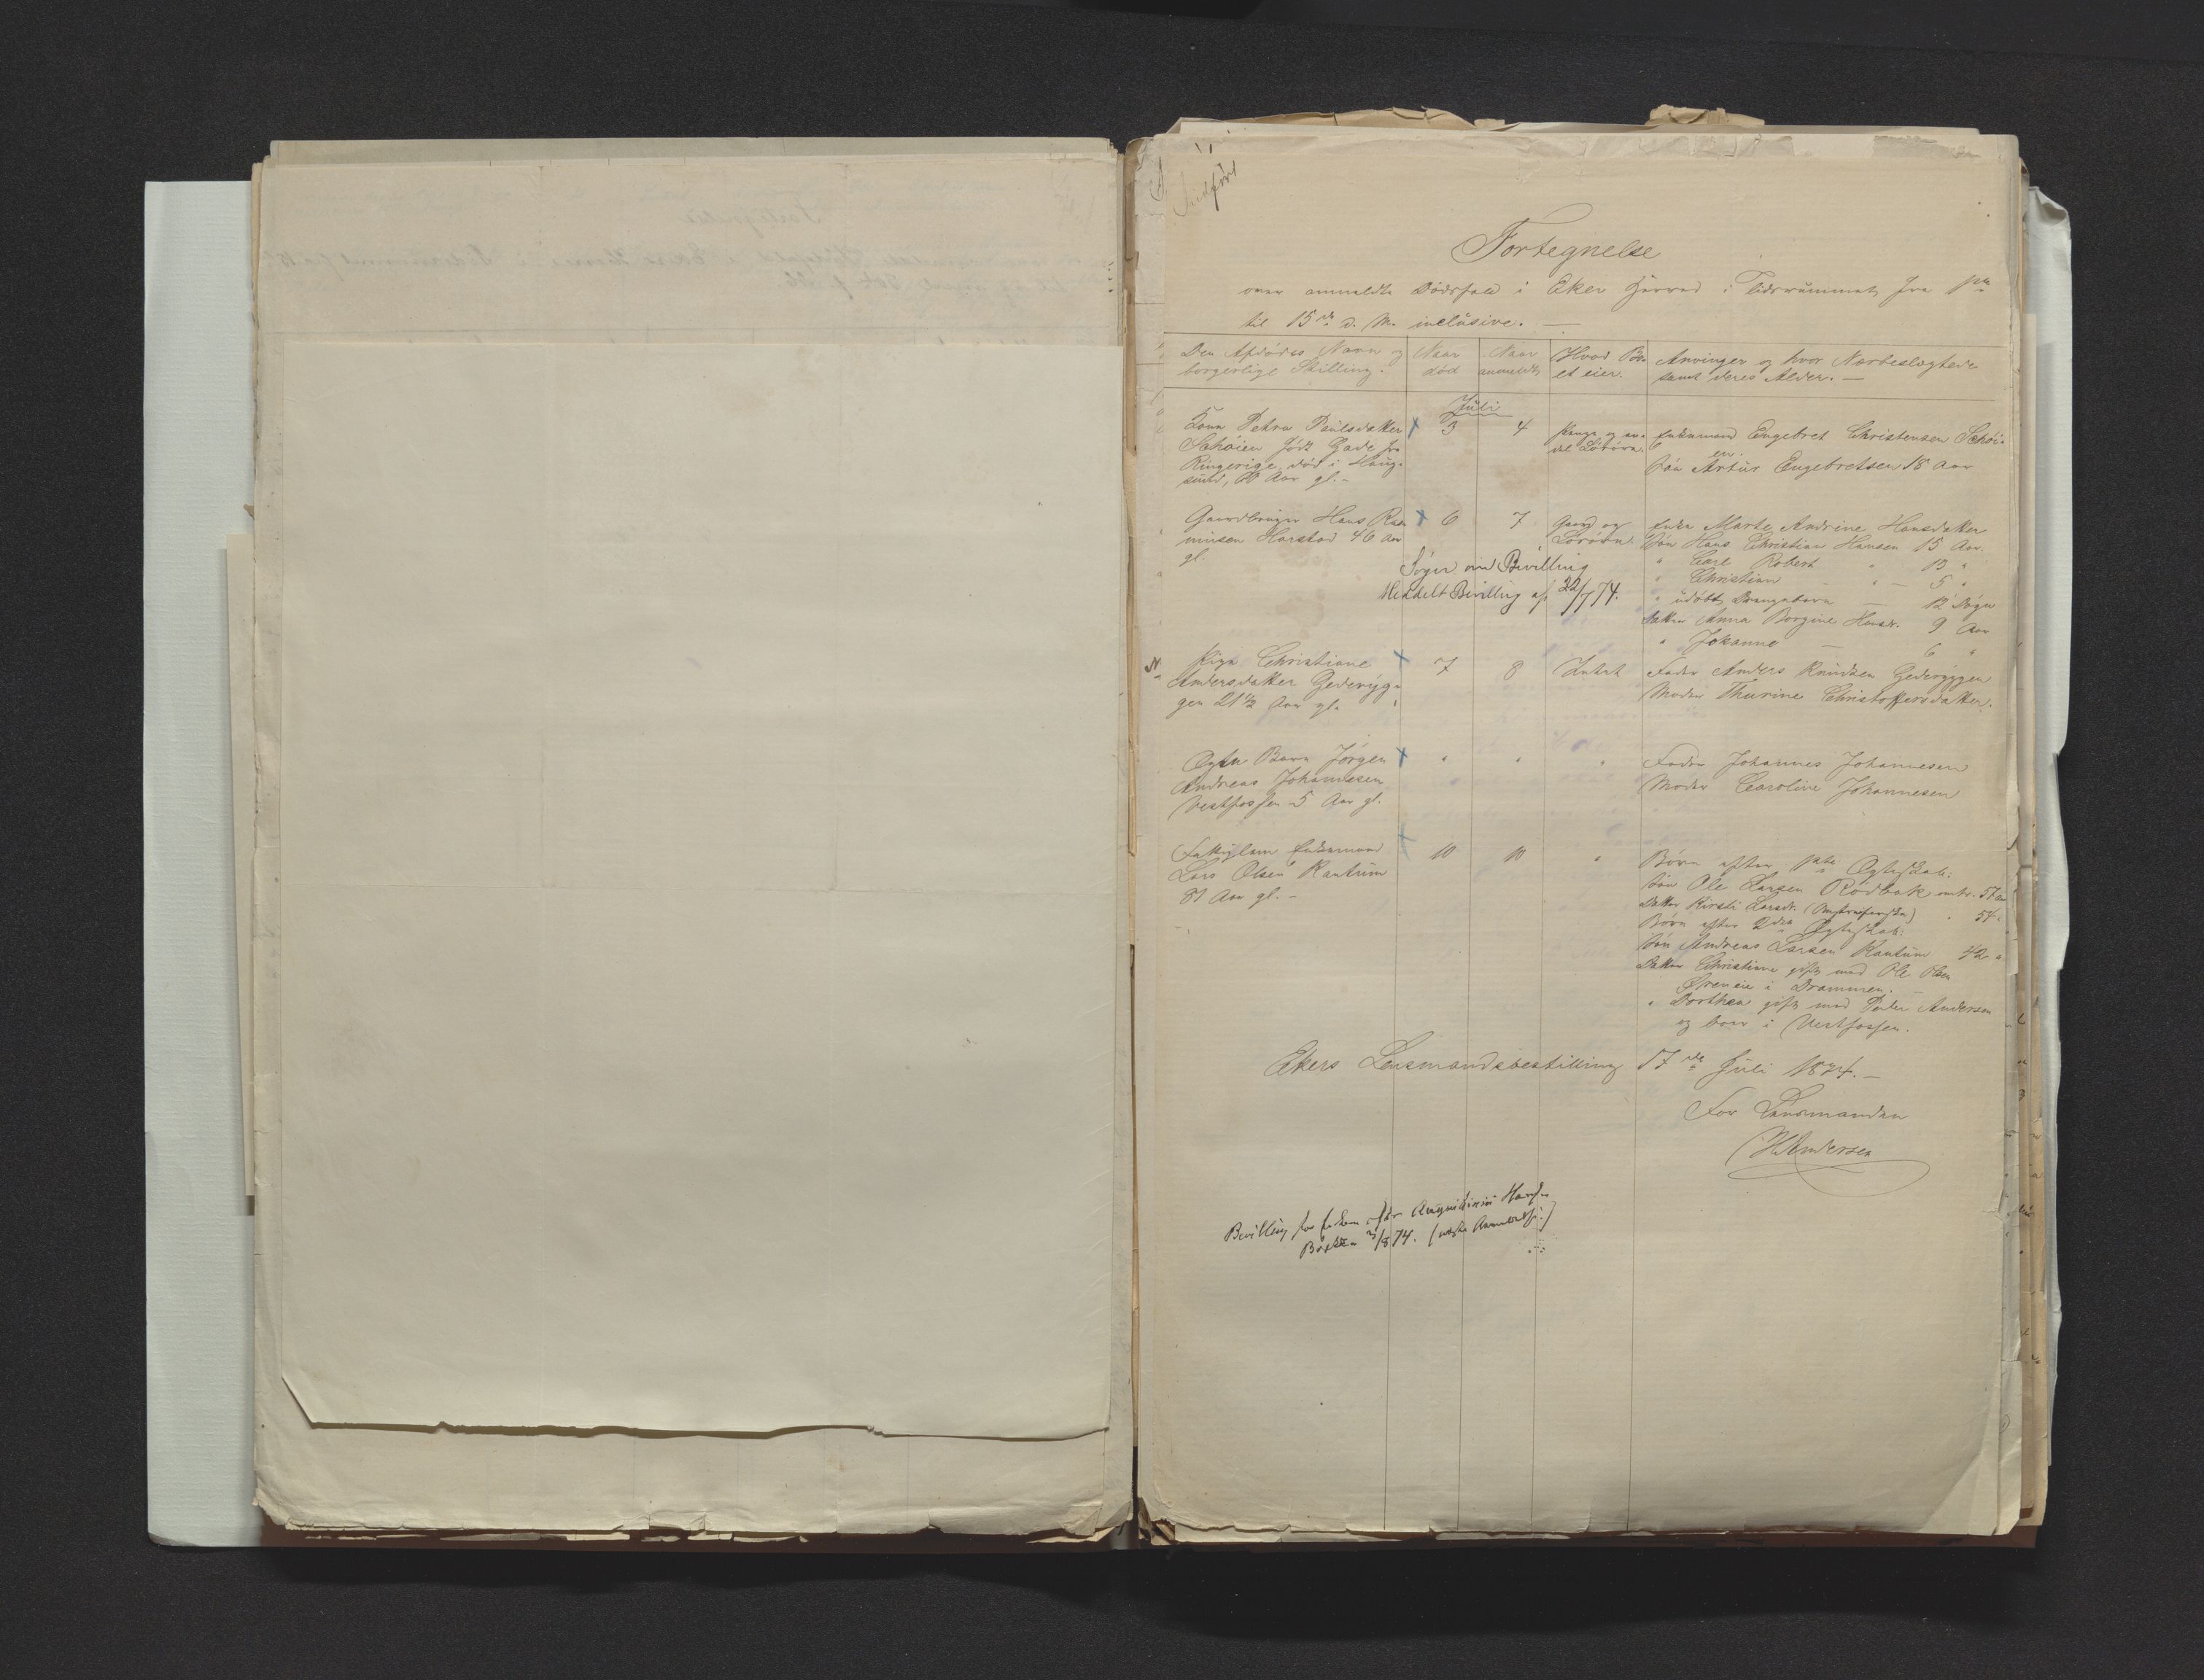 Indført
Fortegnelse
over anmeldte Dødsfald i Eker Herred i Tidsrummet fra 1ste
til 15de d. M. inclusive. —
Den Afdødes Navn og borgerlige Stilling.
Naar død
Naar anmeldt
Hvad Boet eier.
Arvinger og hvor Nærbeslægtede samt deres Alder. —
Juli
Kone Petra Paulsdatter
Schøien født Gade fra
Ringerige, død i Houg-
sund, 60 Aar gl. –
3
4
Penge og en-
del Løsøre.
Enkemand Engebret Christensen Schøi-
en.
Søn Artur Engebretsen 18 Aar
Gaardbruger Hans Ras-
mussen Harstad 46 Aar
gl.
6
7
Gaard og
Løsøre.
Enke Marte Andrine Hansdatter
Søn Hans Christian Hansen 15 Aar.
" Carl Robert " 13 "
" Christian " — 5 "
" udøbt Drengebarn — 12 Døgn
Datter Anna Borgine Hansd. 9 Aar
" Johanne — 6 "
Søger om Bevilling
Meddelt Bevilling af 22/7 74.
N.
Pige Christiane
Andersdatter Gederyg-
gen 21 1/2 Aar gl.
7
8
Intet
Fader Anders Knudsen Gederyggen
Moder Thurine Christoffersdatter.
Ægte Barn Jørgen
Andreas Johannesen
Vestfossen 5 Aar gl.
"
"
"
Fader Johannes Johannesen
Moder Caroline Johannesen
Fattiglem Enkemand
Lars Olsen Kantum
81 Aar gl. –
10
10
"
Børn efter 1ste Ægteskab:
Søn Ole Larsen Rødbak omtr. 57 Aar
Datter Kirsti Larsdr. " 54 "
Børn efter 2det Ægteskab:
Søn Andreas Larsen Kantum 42 "
Datter Christiane gift med Ole Olsen
Greneie i Drammen. —
" Dorthea gift med Peder Andersen
og boer i Vestfossen.
Ekers Lensmandsbestilling 17de Juli 1874. —
For Lensmanden
H. Andersen
Bevilling for Enken efter Hansen
/8 74. (